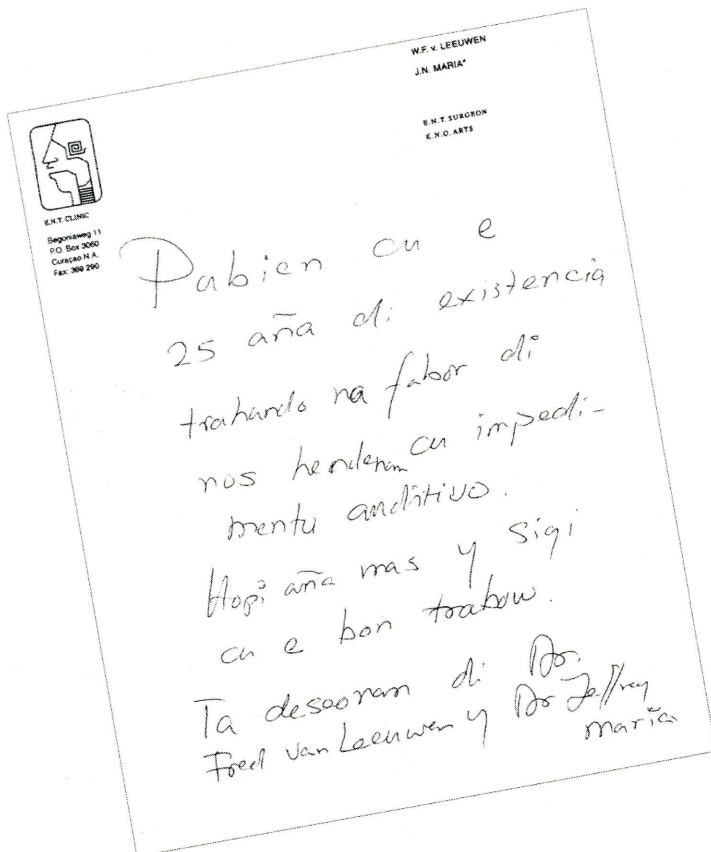 W.F. v. LEEUWEN
J.N. MARIA*
E.N.T. SURGEON
K.N.O. ARTS
E.N.T. CLINIC
Begoniaweg 11
P.O. Box 3060
Curaçao N.A.
Fax: 369 290
Pabien cu e
25 aña di existencia
trahando na fabor di
nos hendenan cu impedi-
mentu auditivo.
Hopi aña mas y sigi
cu e bon trabow.
Ta deseonan di Dr.
Fred van Leeuwen y Dr Jeffrey
Maria